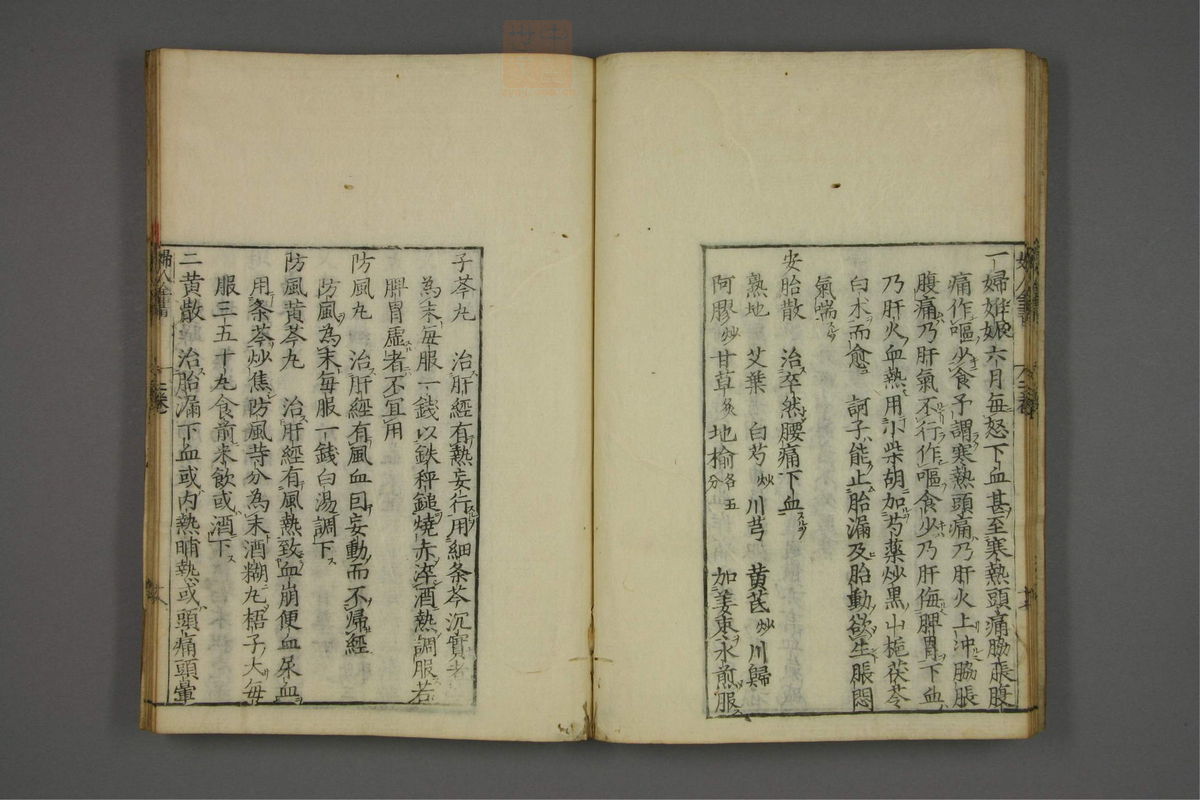 一婦姙娠六月毎怒下血甚至寒熱頭痛脇脹腹
痛作嘔少食予謂寒熱頭痛乃肝火上沖脇脹
腹痛乃肝氣不行作嘔食少乃肝侮脾胃下血
乃肝火血熱用小柴胡加芍藥炒黒山梔茯苓
白朮而愈 訶子能止胎漏及胎動欲生脹悶
氣喘
安胎散 治卒然腰痛下血
熟地 艾葉 白芍炒 川芎 黄芪炒 川歸
阿膠炒 甘草炙 地榆各五分 加姜枣水煎服
子芩丸 治肝經有熱妄行用細条芩沉實者
為末毎服一錢以鉄秤鎚燒赤淬酒熱調服若
脾胃虚者不宜用
防風丸 治肝經有風血因妄動而不帰經
防風為末毎服一錢白湯調下
防風黄芩丸 治肝經有風熱致血崩便血尿血
用条芩炒焦防風等分為末酒糊丸梧子大毎
服三五十丸食前米飲或酒下
二黄散 治胎漏下血或内熱晡熱或頭痛頭暈